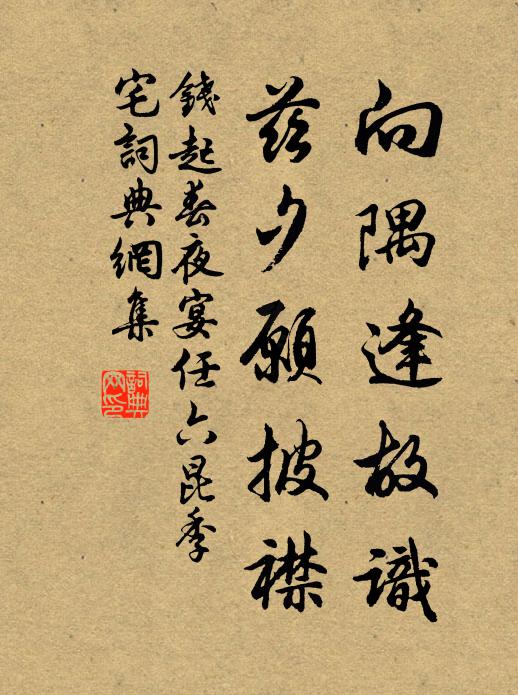 向隅逢故識
茲夕願披襟
錢起春夜宴任六昆季
宅詞典網集
詞典
网印